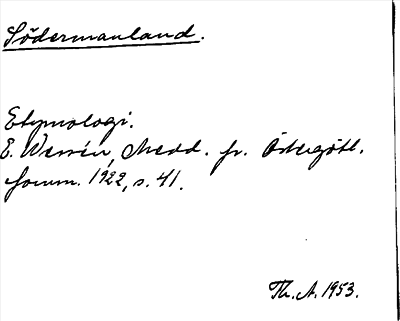 Södermanland.
Etymologi.
E. Wessén, Medd. fr. Östergötl.
fornm. 1922, s. 41.
Th. A. 1953.